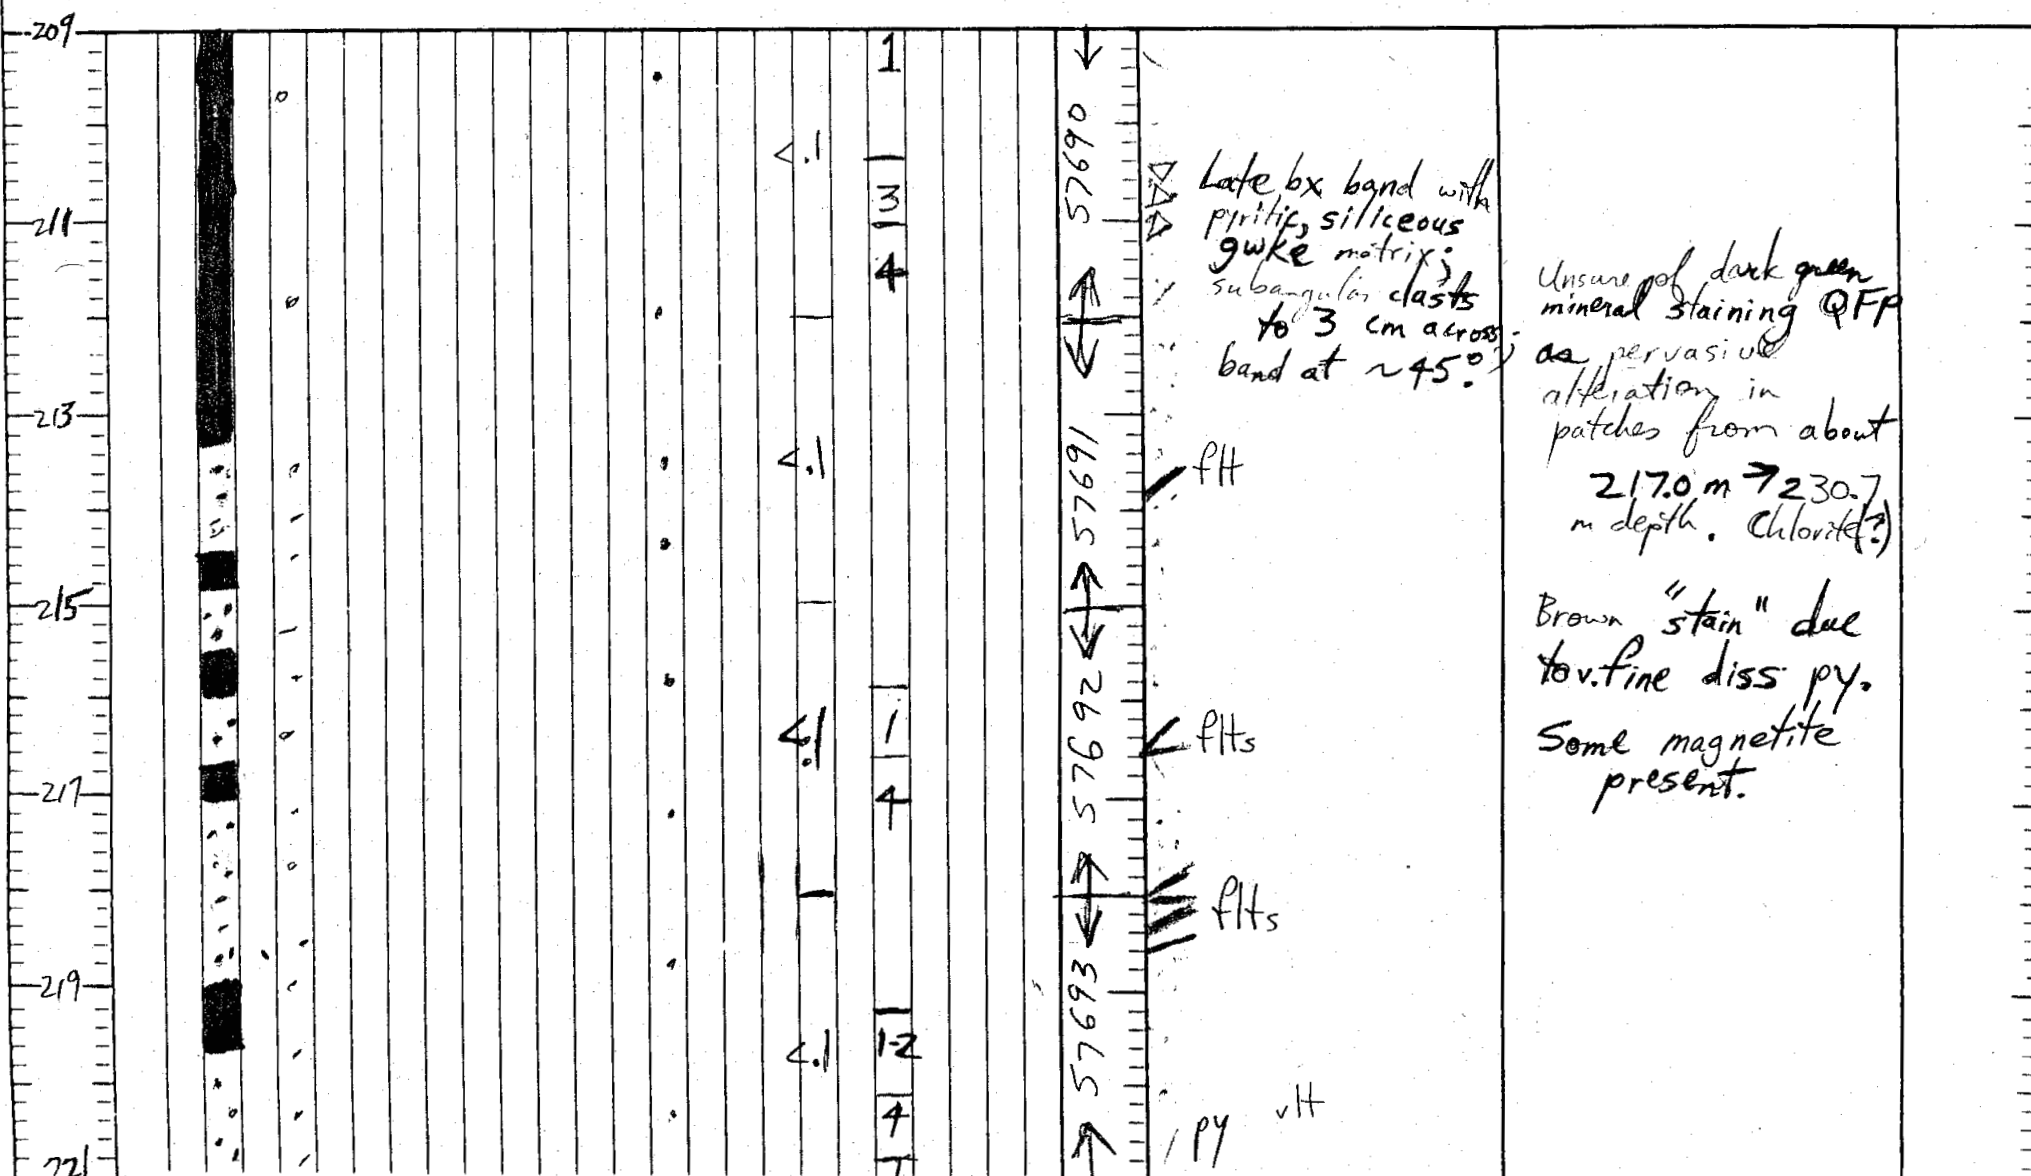 209
211
213
215
217
219
221
<.1
<.1
<.1
<.1
1
3
4
1
4
1-2
4
1
57690
57691
57692
57693
Late bx band with
pyritic, siliceous
gwke matrix;
subangular clasts
to 3 cm across;
band at ~45°.
flt
flts
flts
py vlt
Unsure of dark green
mineral staining QFP
as pervasive
alteration in
patches from about
217.0 m → 230.7
m depth. Chlorite(?)
Brown "stain" due
to v.fine diss py.
Some magnetite
present.